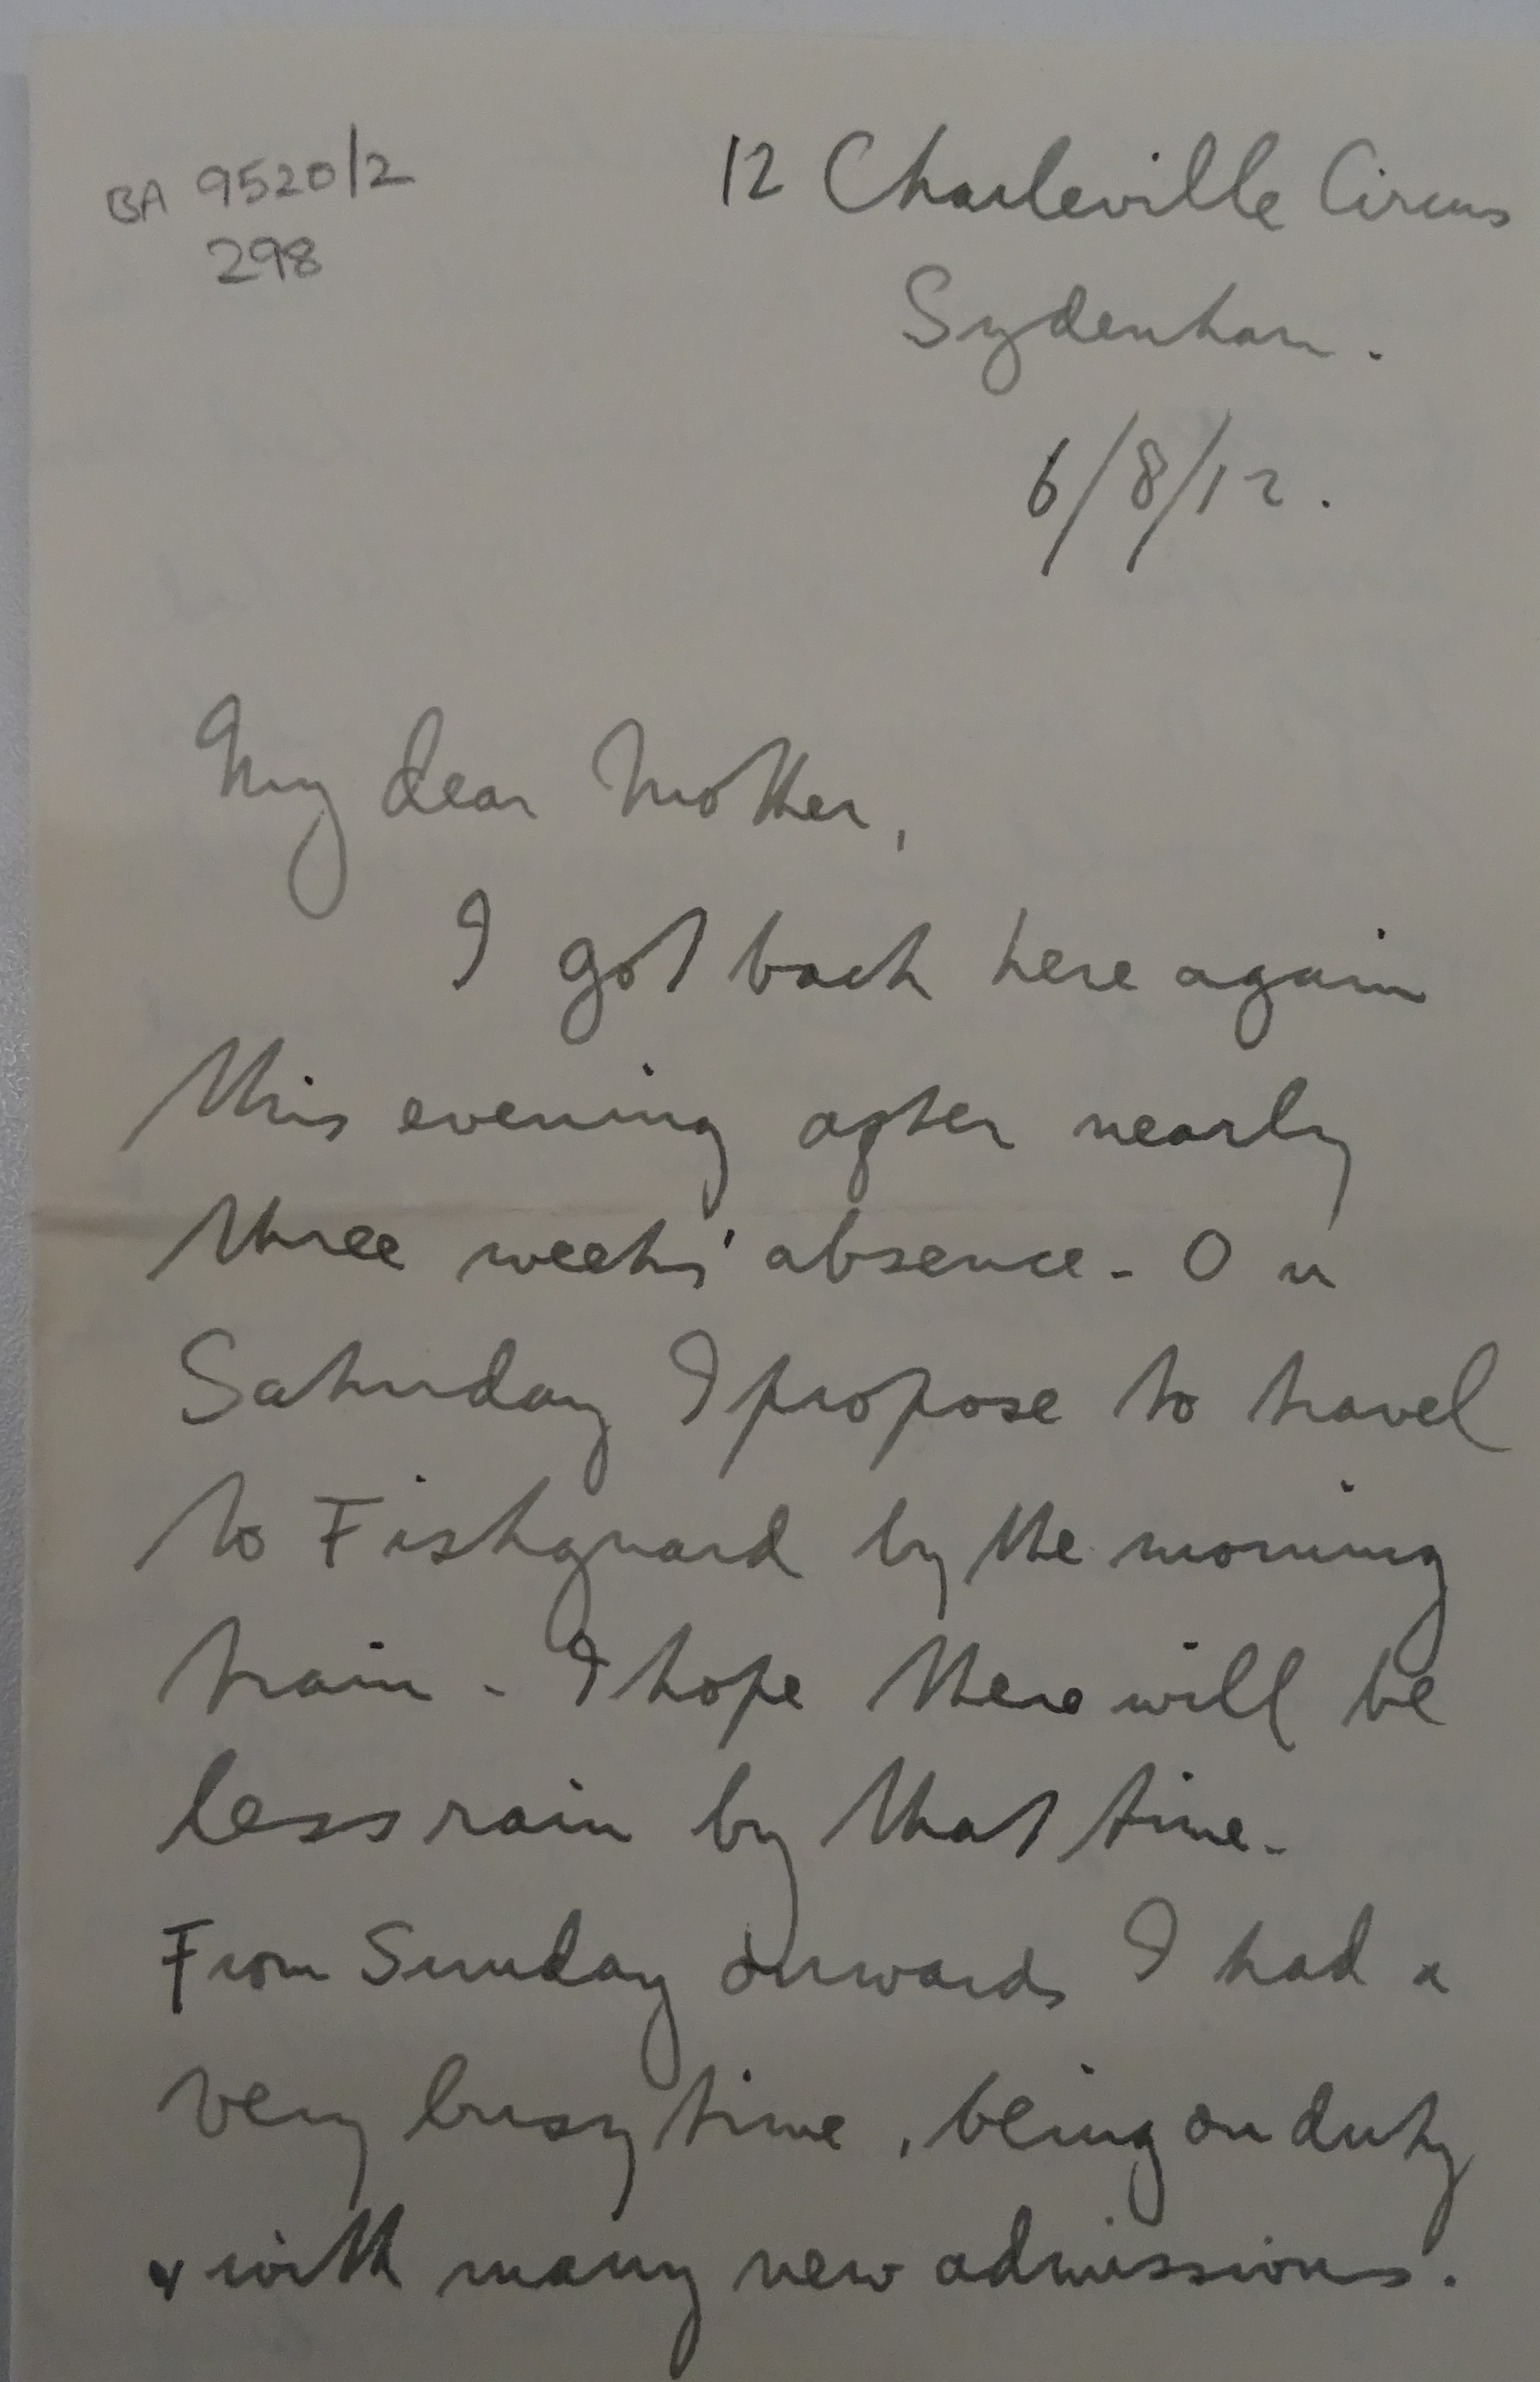 BA 9520/2
298
12 Charleville Circus
Sydenham.
6/8/12.
My dear Mother,
I got back here again
this evening after nearly
three weeks' absence. On
Saturday I propose to travel
to Fishguard by the morning
train. I hope there will be
less rain by that time.
From Sunday onwards I had a
very busy time, being on duty
& with many new admissions.